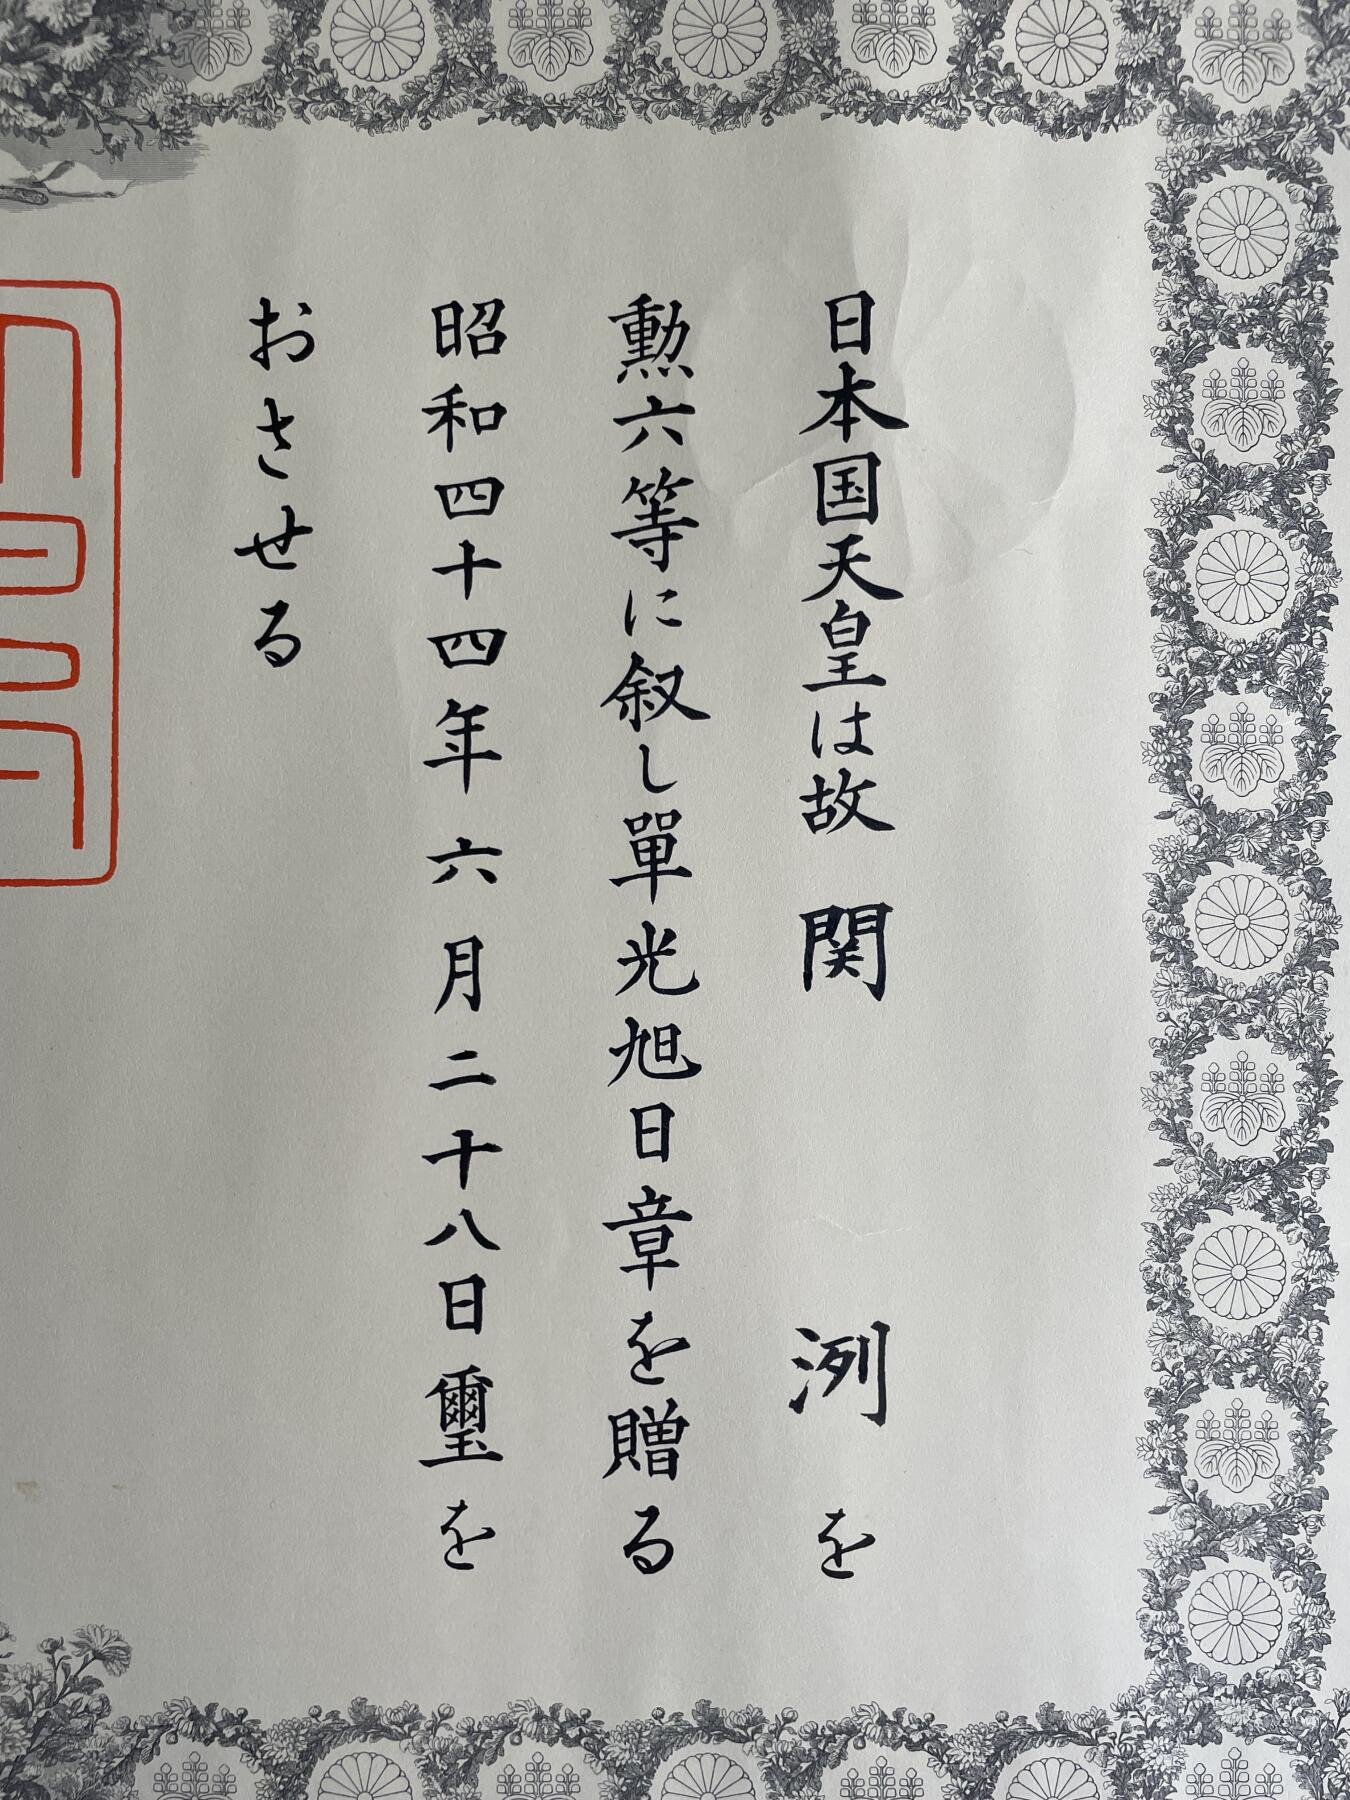 日本国天皇は故 関 洌を
勲六等に叙し單光旭日章を贈る
昭和四十四年六月二十八日璽を
おさせる